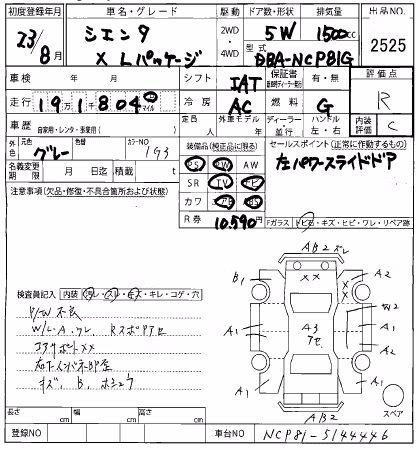 初度登録年月 車名・グレード 駆動 ドア数・形状 排気量 出品NO.
23/8月 シエンタ X Lパッケージ 2WD 4WD 5W 1500cc 2525
型式 DBA-NCP81G
車検 年 月 シフト IAT 保証書 有・無 評価点
走行 191千804 マイル 冷房 AC 燃料 G R
車歴 自家用・レンタ・事業用( ) 定員 人 外車モデル 年 ディーラー・並行 ハンドル 左・右 内装評価 C
外色 元色 グレー 色替 カラーNO 1G3 装備品(純正品に限る) セールスポイント(正常に作動するもの)
PS PW AW 左パワースライドドア
名義変更期限 月 日迄 積載 t SR TV ナビ
注意事項(欠品・修復・不具合箇所および状態) カワ エアB
R券 10,590円 Fガラス トビ石・キズ・ヒビ・ワレ・リペア跡
AB2
B1 XX A2
検査員記入 内装 コゲ・穴
P/W不良 A1 A1
W/L・A・ワレ 43
コアサポートXX
A1 A2
キズ、B、
AB2
スペア
長さ cm 幅 cm 高さ cm
登録NO 車台NO NCP81-5144446